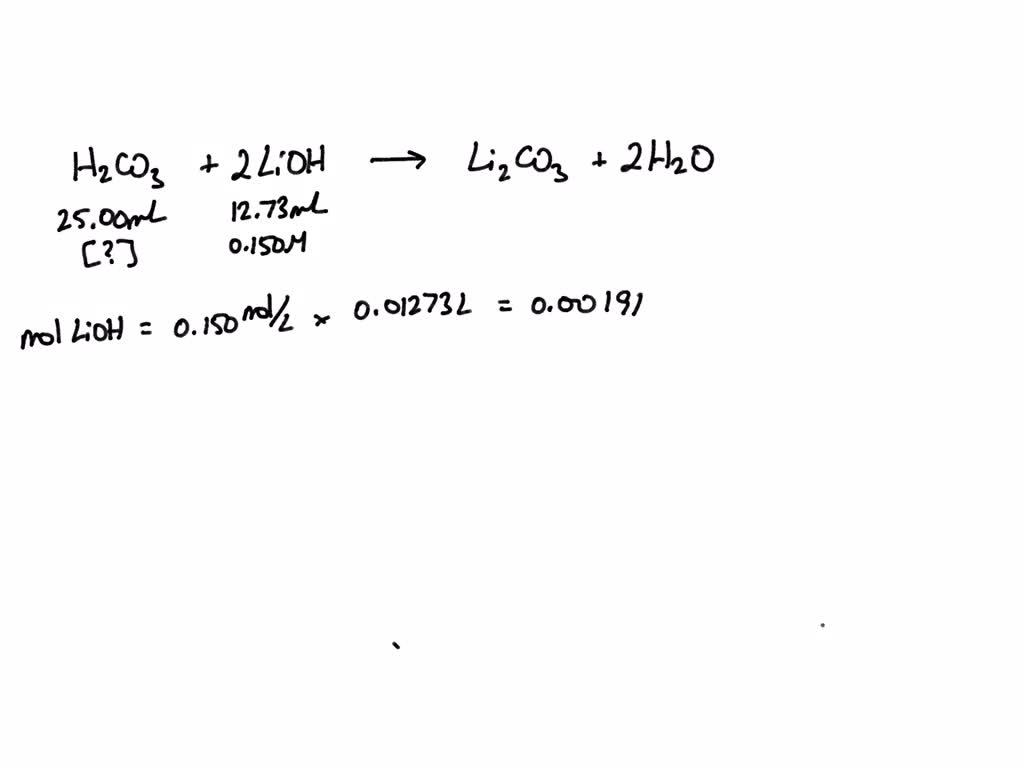 H₂CO₃ + 2LiOH → Li₂CO₃ + 2H₂O
25.00mL 12.73mL
[?] 0.150M
mol LiOH = 0.150 mol/L × 0.01273L = 0.00191